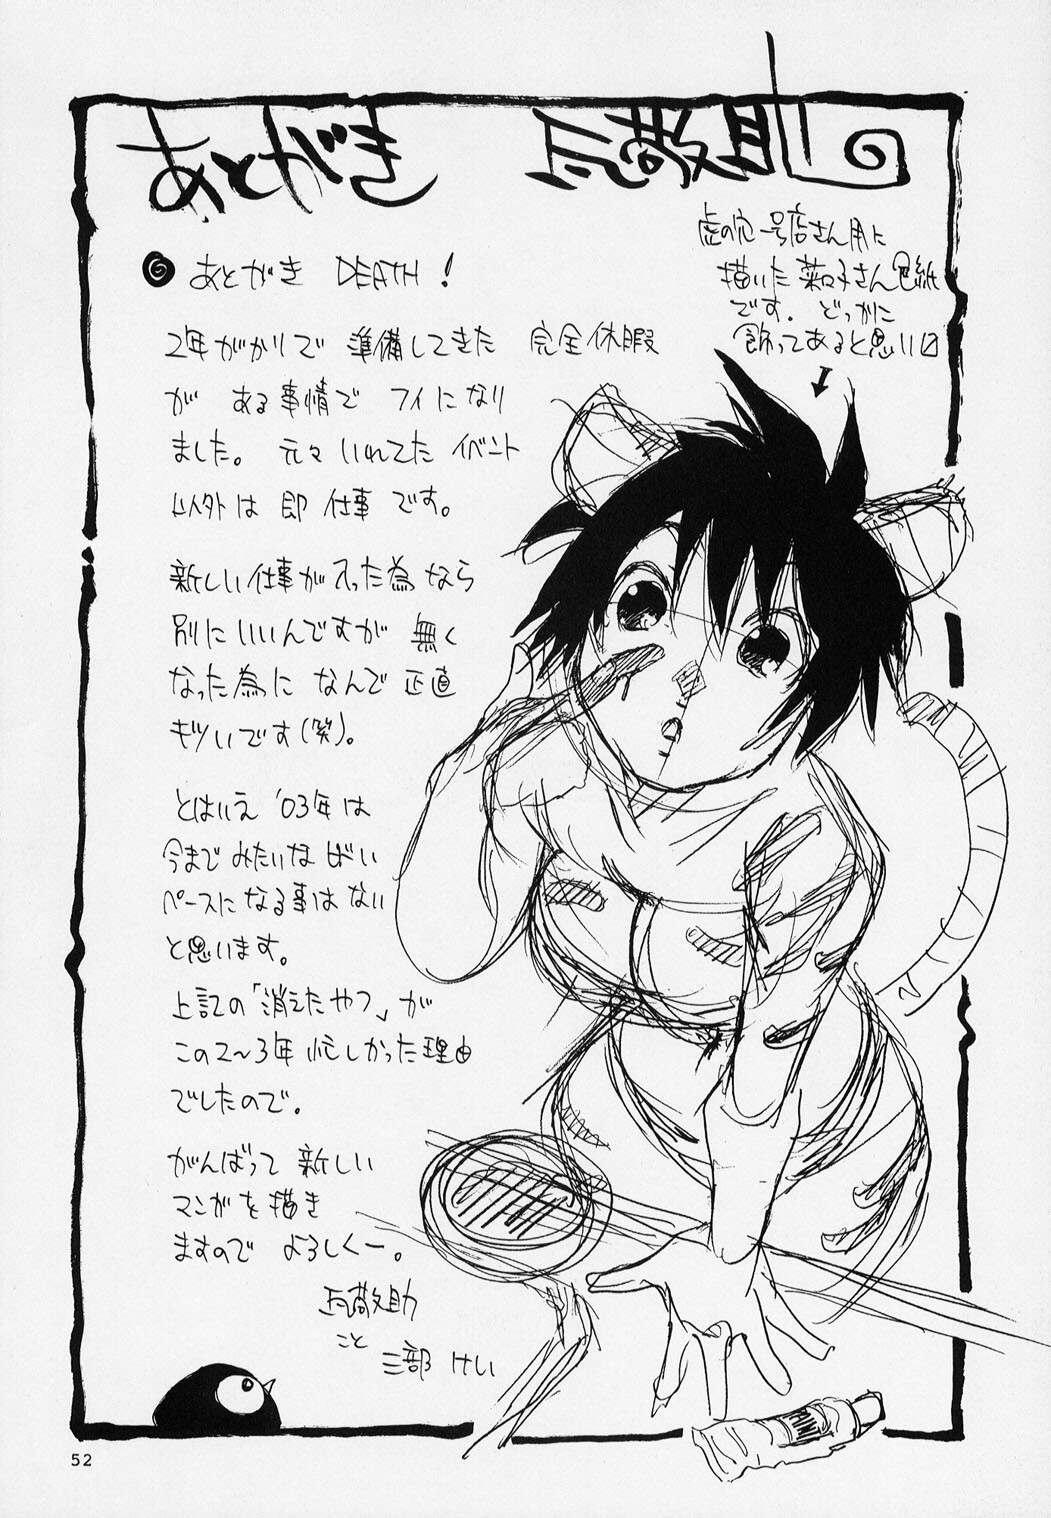 あとがき
虎の穴一号店さん用に
描いた菜々子さん色紙
です。どっかに
飾ってあると思い〼
あとがき DEATH!
2年がかりで 準備してきた 完全休暇
が ある事情で フイになり
ました。 元々 いれてた イベント
以外は 即 仕事 です。
新しい仕事が入った為なら
別にいいんですが 無く
なった為に なんで 正直
キツいです(笑)。
とはいえ '03年は
今まで みたいな ばい
ペースに なる事は ない
と思います。
上記の「消えたやつ」が
この2〜3年 忙しかった理由
でしたので。
がんばって 新しい
マンガを 描き
ますので よろしくー。
瓦敬助
こと
三部 けい
52